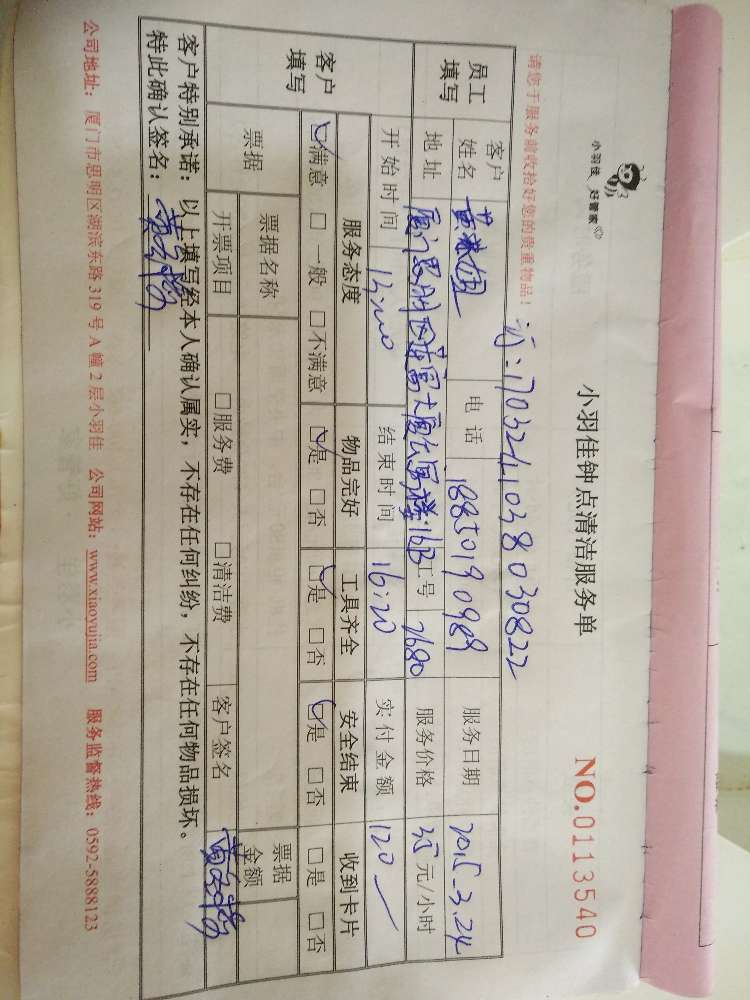 小羽佳 好管家
小羽佳钟点清洁服务单
NO.0113540
请您于服务前收拾好您的贵重物品！
1703241038030822
员工填写 客户姓名 电话 18850190989 服务日期 2015.3.24
地址 16B 工号 2680 服务价格 35元/小时
开始时间 结束时间 16:20 实付金额 120
客户填写 服务态度 物品完好 工具齐全 安全结束 收到卡片
☑满意 □一般 □不满意 ☑是 □否 ☑是 □否 ☑是 □否 □是 □否
票据 票据名称 票据金额
开票项目 □服务费 □清洁费 客户签名
客户特别承诺：以上填写经本人确认属实，不存在任何纠纷，不存在任何物品损坏。
特此确认签名：
公司地址：厦门市思明区湖滨东路319号A幢2层小羽佳 公司网站：www.xiaoyujia.com 服务监督热线：0592-5888123